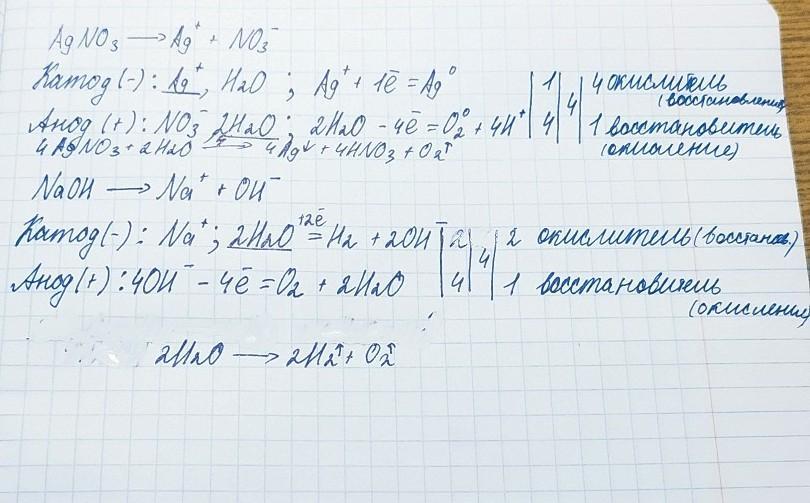 AgNO₃ ⟶ Ag⁺ + NO₃⁻
Катод(-): Ag⁺, H₂O ; Ag⁺ + 1ē = Ag⁰ | 1 | 4 | 4 окислитель
(восстановление)
Анод (+): NO₃⁻ 2H₂O ; 2H₂O - 4ē = O₂⁰ + 4H⁺ | 4 | | 1 восстановитель
(окисление)
4AgNO₃ + 2H₂O ⟶ 4Ag↓ + 4HNO₃ + O₂↑
NaOH ⟶ Na⁺ + OH⁻
Катод(-): Na⁺; 2H₂O +2ē = H₂ + 2OH⁻ | 2 | 4 | 2 окислитель (восстанов.)
Анод(+): 4OH⁻ - 4ē = O₂ + 2H₂O | 4 | | 1 восстановитель
(окисление)
2H₂O ⟶ 2H₂↑ + O₂↑